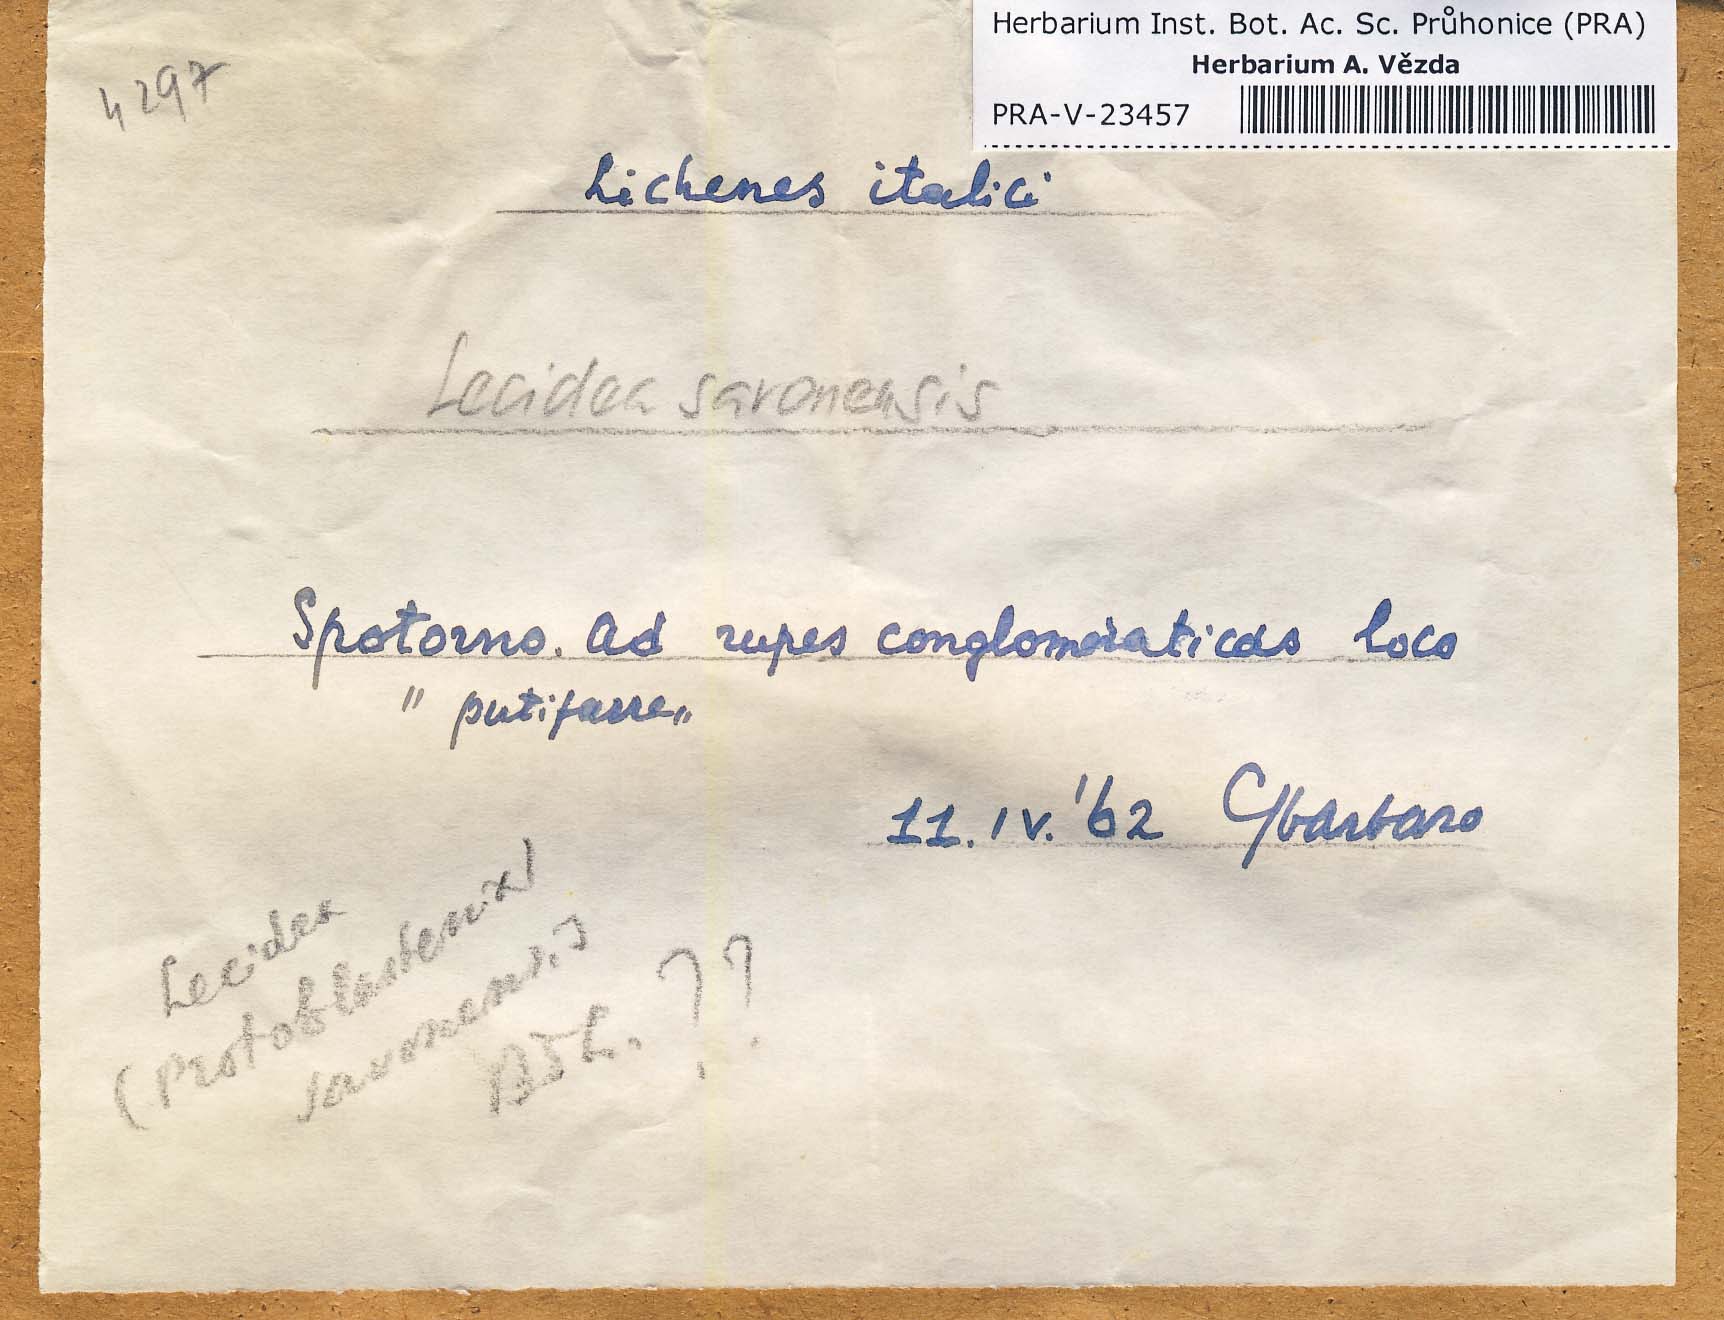 Herbarium Inst. Bot. Ac. Sc. Průhonice (PRA)
Herbarium A. Vězda
PRA-V-23457
4297
Lichenes italici
Lecidea savonensis
Spotorno. Ad rupes conglomeraticas loco
" putifarre„
11. IV. '62 Gbarbaro
Lecidea
(Protoblastenia)
savonensis
B. de L. ??